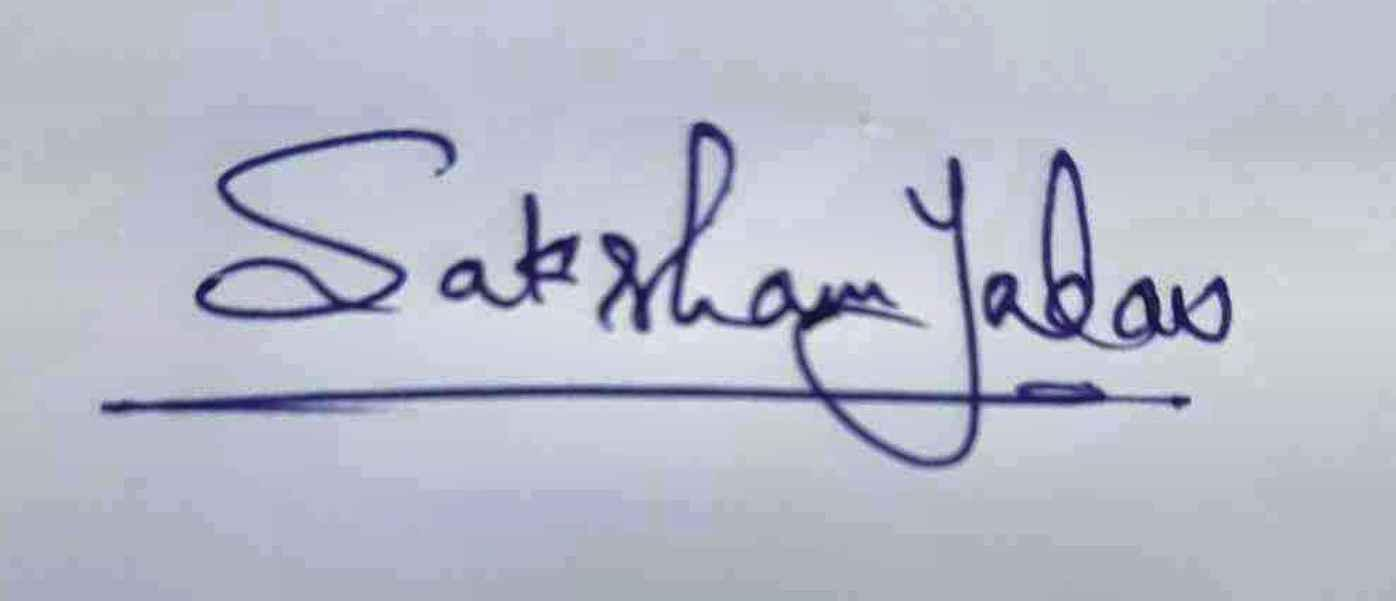 Saksham Yadav